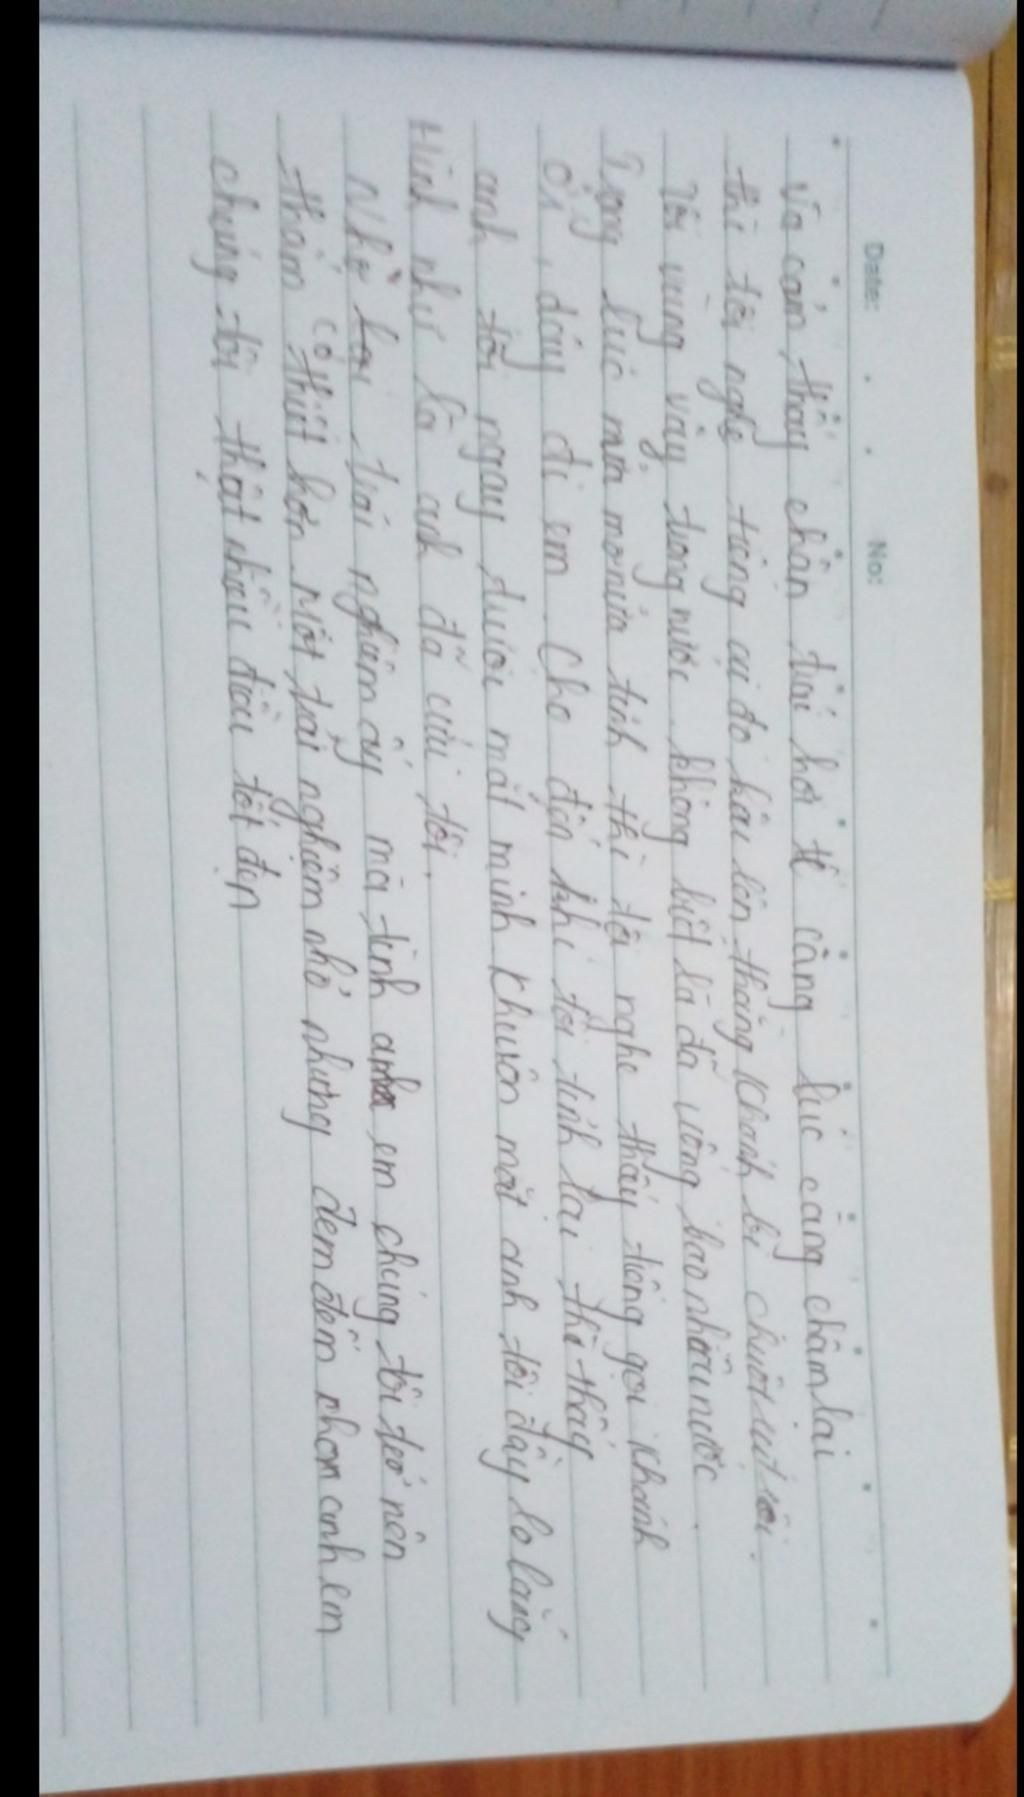 Date: No:
Và cảm thấy chân trái hơi tê càng lúc càng chậm lại
thì tôi nghe tiếng ai đó kêu lên thằng Khánh bị chuột rút rồi.
Tôi vùng vẫy trong nước không biết là đã uống bao nhiêu nước.
Trong lúc mơ mơ nửa tỉnh thì tôi nghe thấy tiếng gọi Khánh
ơi, dậy đi em. Cho đến khi tôi tỉnh lại thì thấy
anh tôi ngay dưới mắt mình khuôn mặt anh tôi đầy lo lắng
Hình như là anh đã cứu tôi.
Nhờ trải nghiệm ấy mà tình anh em chúng tôi trở nên
thắm thiết hơn. Một trải nghiệm nhỏ nhưng đem đến cho anh em
chúng tôi thật nhiều điều tốt đẹp